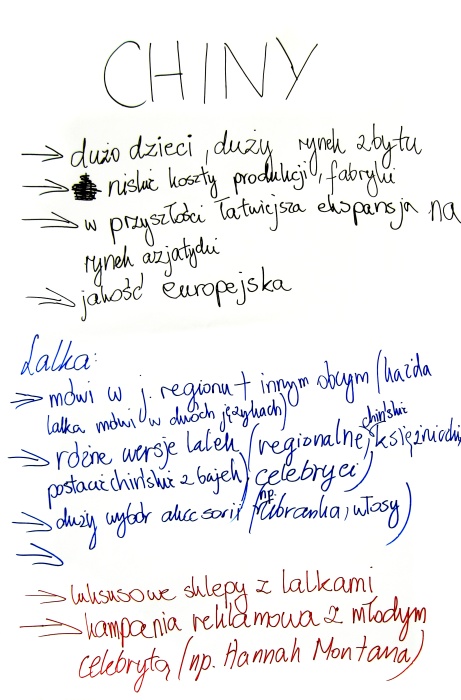 CHINY
→ dużo dzieci, duży rynek zbytu
→ niskie koszty produkcji, fabryki
→ w przyszłości łatwiejsza ekspansja na
rynek azjatycki
→ jakość europejska
Lalka:
→ mówi w j. regionu + innym obcym (każda
lalka mówi w dwóch językach)
→ różne wersje lalek (regionalne, chińskie księżniczki,
postacie chińskie z bajek, celebryci)
→ duży wybór akcesorii (np. ubranka, włosy)
→
→ luksusowe sklepy z lalkami
→ kampania reklamowa z młodym
celebrytą (np. Hannah Montana)